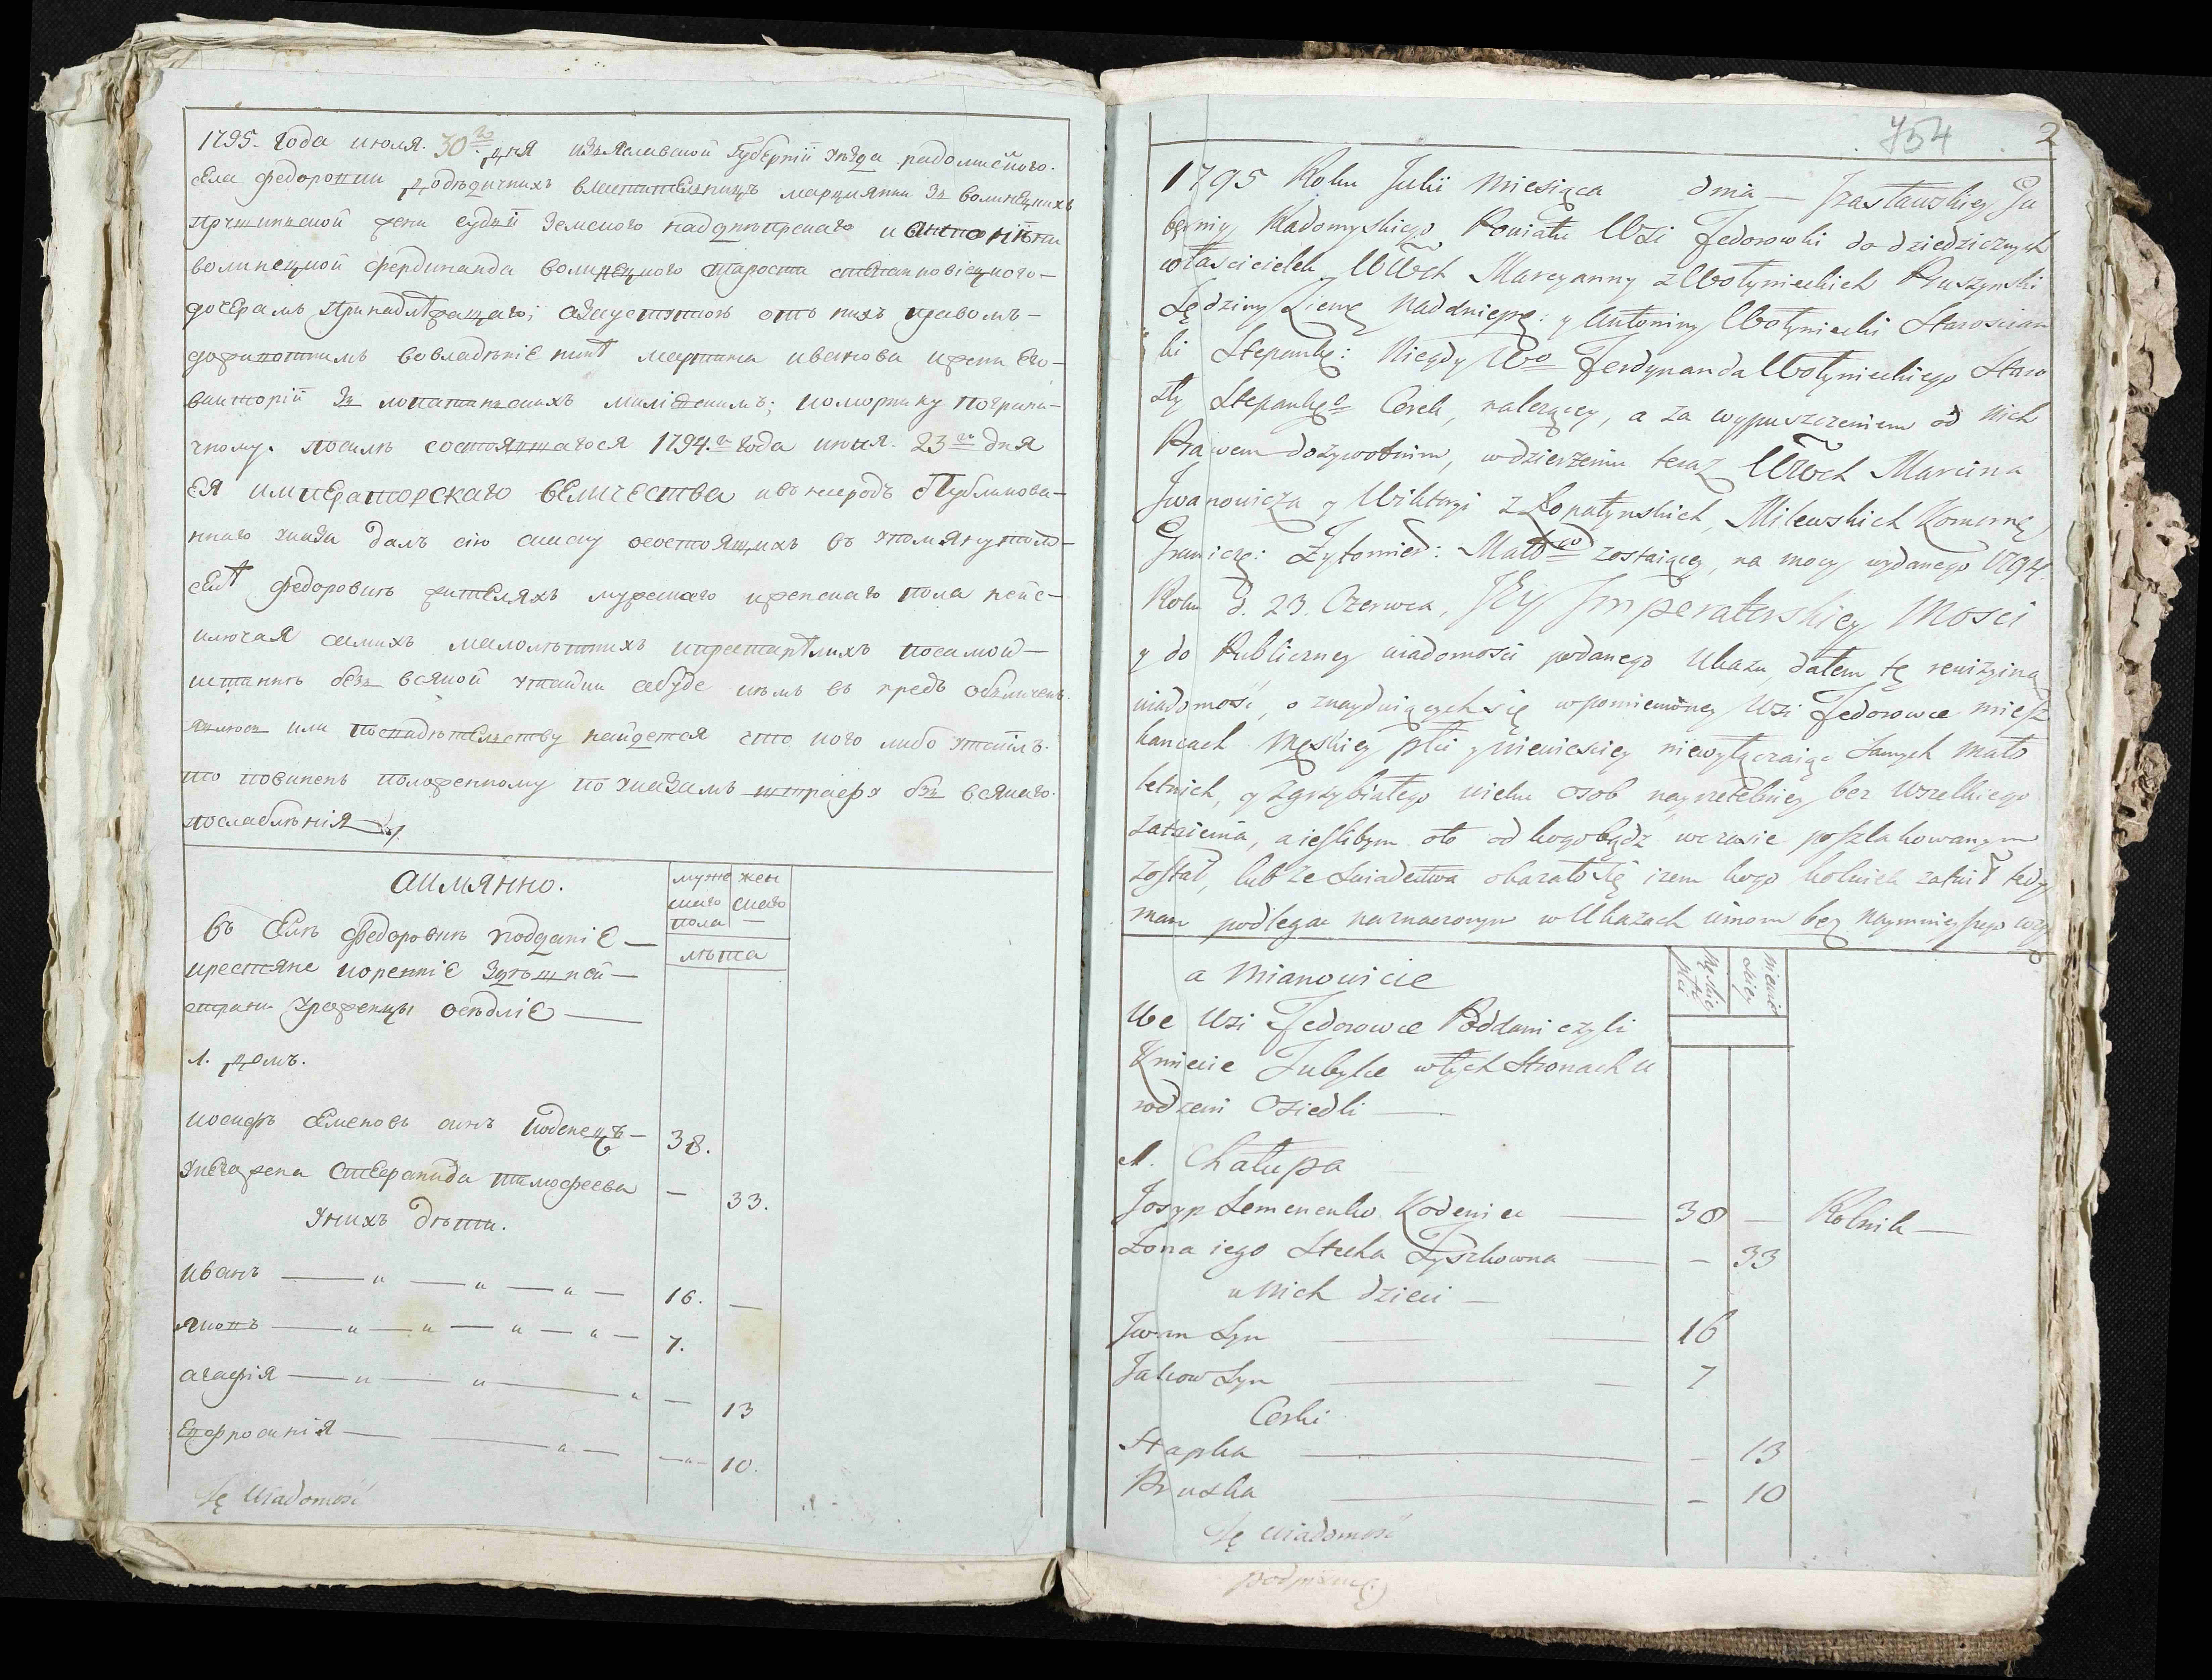 1795. года июля. 30го дня изяславской губернїи уѣзда радомисского.
села федоровки додѣдичнихъ властителницъ марцияни зъ волинецкихъ
пружинской жени судїи земского надднѣпрскаго и антонѣни
волинецкой фердинанда волинецкого старости степанковіецкого—
дочерамъ принадлѣжащаго; азауступкою отъ нихъ правомъ—
доживотнимъ вовладѣніе пннѣ мартина иванова ижени его—
викторїи зъ лопатинскихъ милїевскимъ; коморнику пограни-
чному. посилѣ состоявшагося 1794.го года июня. 23го дня
ея императорскаго величества ивънародъ публикова—
ннаго указа далъ сію скаску осостоящихъ въ упомянутомъ—
селѣ федоровкѣ жителяхъ мужескаго иженскаго пола неис—
ключая самихъ малолѣтнихъ ипрестарѣлихъ посамой—
истиннѣ безъ всякой утайки абуде кѣмъ въ предъ обличенъ
явлюсь или посвидѣтелству найдется что кого либо утаилъ.
то повиненъ положенному по указамъ штрафу безъ всякаго.
послабленія
аимянно.
муже жен
скаго скаго
пола —
лѣта
въ селѣ федоровкѣ подданіе —
крестяне коренніе здѣшней —
страни уроженцы осѣдліе —
1. домъ.
иосифъ семеновъ синъ коденецъ — 38.
унего жена стефанида тимофеева — 33.
унихъ дѣти.
иванъ — " — " — " — 16. —
яковъ — " — " — " — " — 7.
агафія — " — " — " — 13
ефросинія — " — — " — 10.
Tę Wiadomość
754 2
1795 Roku Julii Miesiąca dnia — Jzasławskiey Gu
bernij Radomyskiego Powiatu Wsi Fedorowki do dziedzicznych
właścicielek WWch Marcyanny z Wołynieckich Pruszynski
Sędziny Ziemę Naddniepę: y Antoniny Wołyniecki Starościan
ki Stepankę: Niegdy Wo Ferdynanda Wołynieckiego Staro
sty Stepankgo Corek, należący, a za wypuszczeniem od nich
Prawem dożywotnim, w dzierżeniu teraz WWch Marcina
Jwanowicza y Wiktoryi z Łopatynskich, Milewskich Komornę,
Granicze: Zytomier: Małż zostaiącey, na mocy wydanego 1794.
Roku d. 23. Czerwca, JEy Jmperatorskiey Mosci
y do Publiczney wiadomosci podanego Ukazu, dałem tę rewizyiną
wiadomość, o znayduiących się wpomienioney Wsi Fedorowce miesz
kancach Męskiey płci y niewiesciey niewyłączaiąc samych mało
letnich, y zgrzybiałego wieku osob nayrzetelniey bez wszelkiego
zataienia, a ieslibym oto od kogobądz wczasie poszlakowanym
został, lub ze Swiadectwa okazało się iżem kogo kolwiek zataił tedy
mam podlegac naznaczonym w Ukazach winom bez naymnieyszego
a Mianowicie
męskiey płci
niewie sciey
We Wsi Fedorowce Poddani czyli
Kmiecie Tubylce wtych Stronach u
rodzeni Osiedli —
1. Chałupa
Josyp Semenenko Kodeniec — 38 — Rolnik —
Zona iego Stecha Tyszkowna — – 33
u Nich dzieci —
Jwan Syn — — 16
Jakow Syn — — 7
Corki
Hapka — – 13
Pruska — – 10
Tę wiadomość
podpisuię